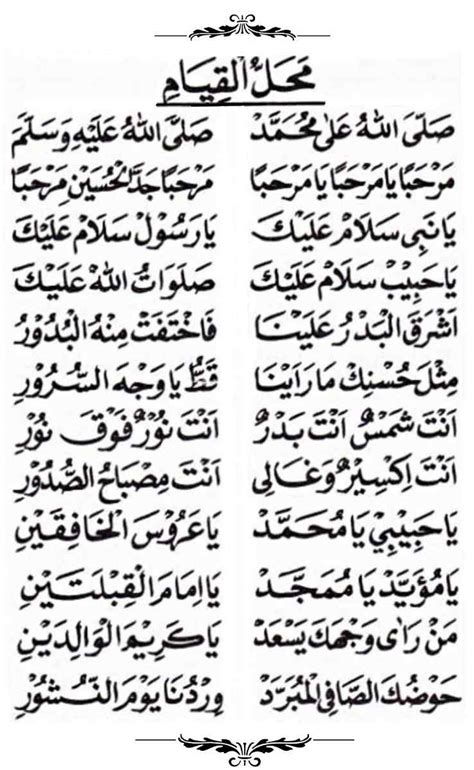 مَحَلُّ الْقِيَامِ
صَلَّى اللهُ عَلَى مُحَمَّدْ صَلَّى اللهُ عَلَيْهِ وَسَلَّمْ
مَرْحَبًا يَا مَرْحَبًا يَا مَرْحَبًا مَرْحَبًا جَدَّ الْحُسَيْنِ مَرْحَبًا
يَا نَبِى سَلَامْ عَلَيْكَ يَا رَسُوْلْ سَلَامْ عَلَيْكَ
يَا حَبِيْبْ سَلَامْ عَلَيْكَ صَلَوَاتُ اللهْ عَلَيْكَ
اَشْرَقَ الْبَدْرُ عَلَيْنَا فَاخْتَفَتْ مِنْهُ الْبُدُوْرُ
مِثْلَ حُسْنِكْ مَا رَاَيْنَا قَطُّ يَا وَجْهَ السُّرُوْرِ
اَنْتَ شَمْسٌ اَنْتَ بَدْرٌ اَنْتَ نُوْرٌ فَوْقَ نُوْرِ
اَنْتَ اِكْسِيْرٌ وَغَالِى اَنْتَ مِصْبَاحُ الصُّدُوْرِ
يَا حَبِيْبِيْ يَا مُحَمَّدْ يَا عَرُوْسَ الْخَافِقَيْنِ
يَا مُؤَيَّدْ يَا مُمَجَّدْ يَا اِمَامَ الْقِبْلَتَيْنِ
مَنْ رَاٰى وَجْهَكَ يَسْعَدْ يَا كَرِيْمَ الْوَالِدَيْنِ
حَوْضُكَ الصَّافِى الْمُبَرَّدْ وِرْدُنَا يَوْمَ النُّشُوْرِ